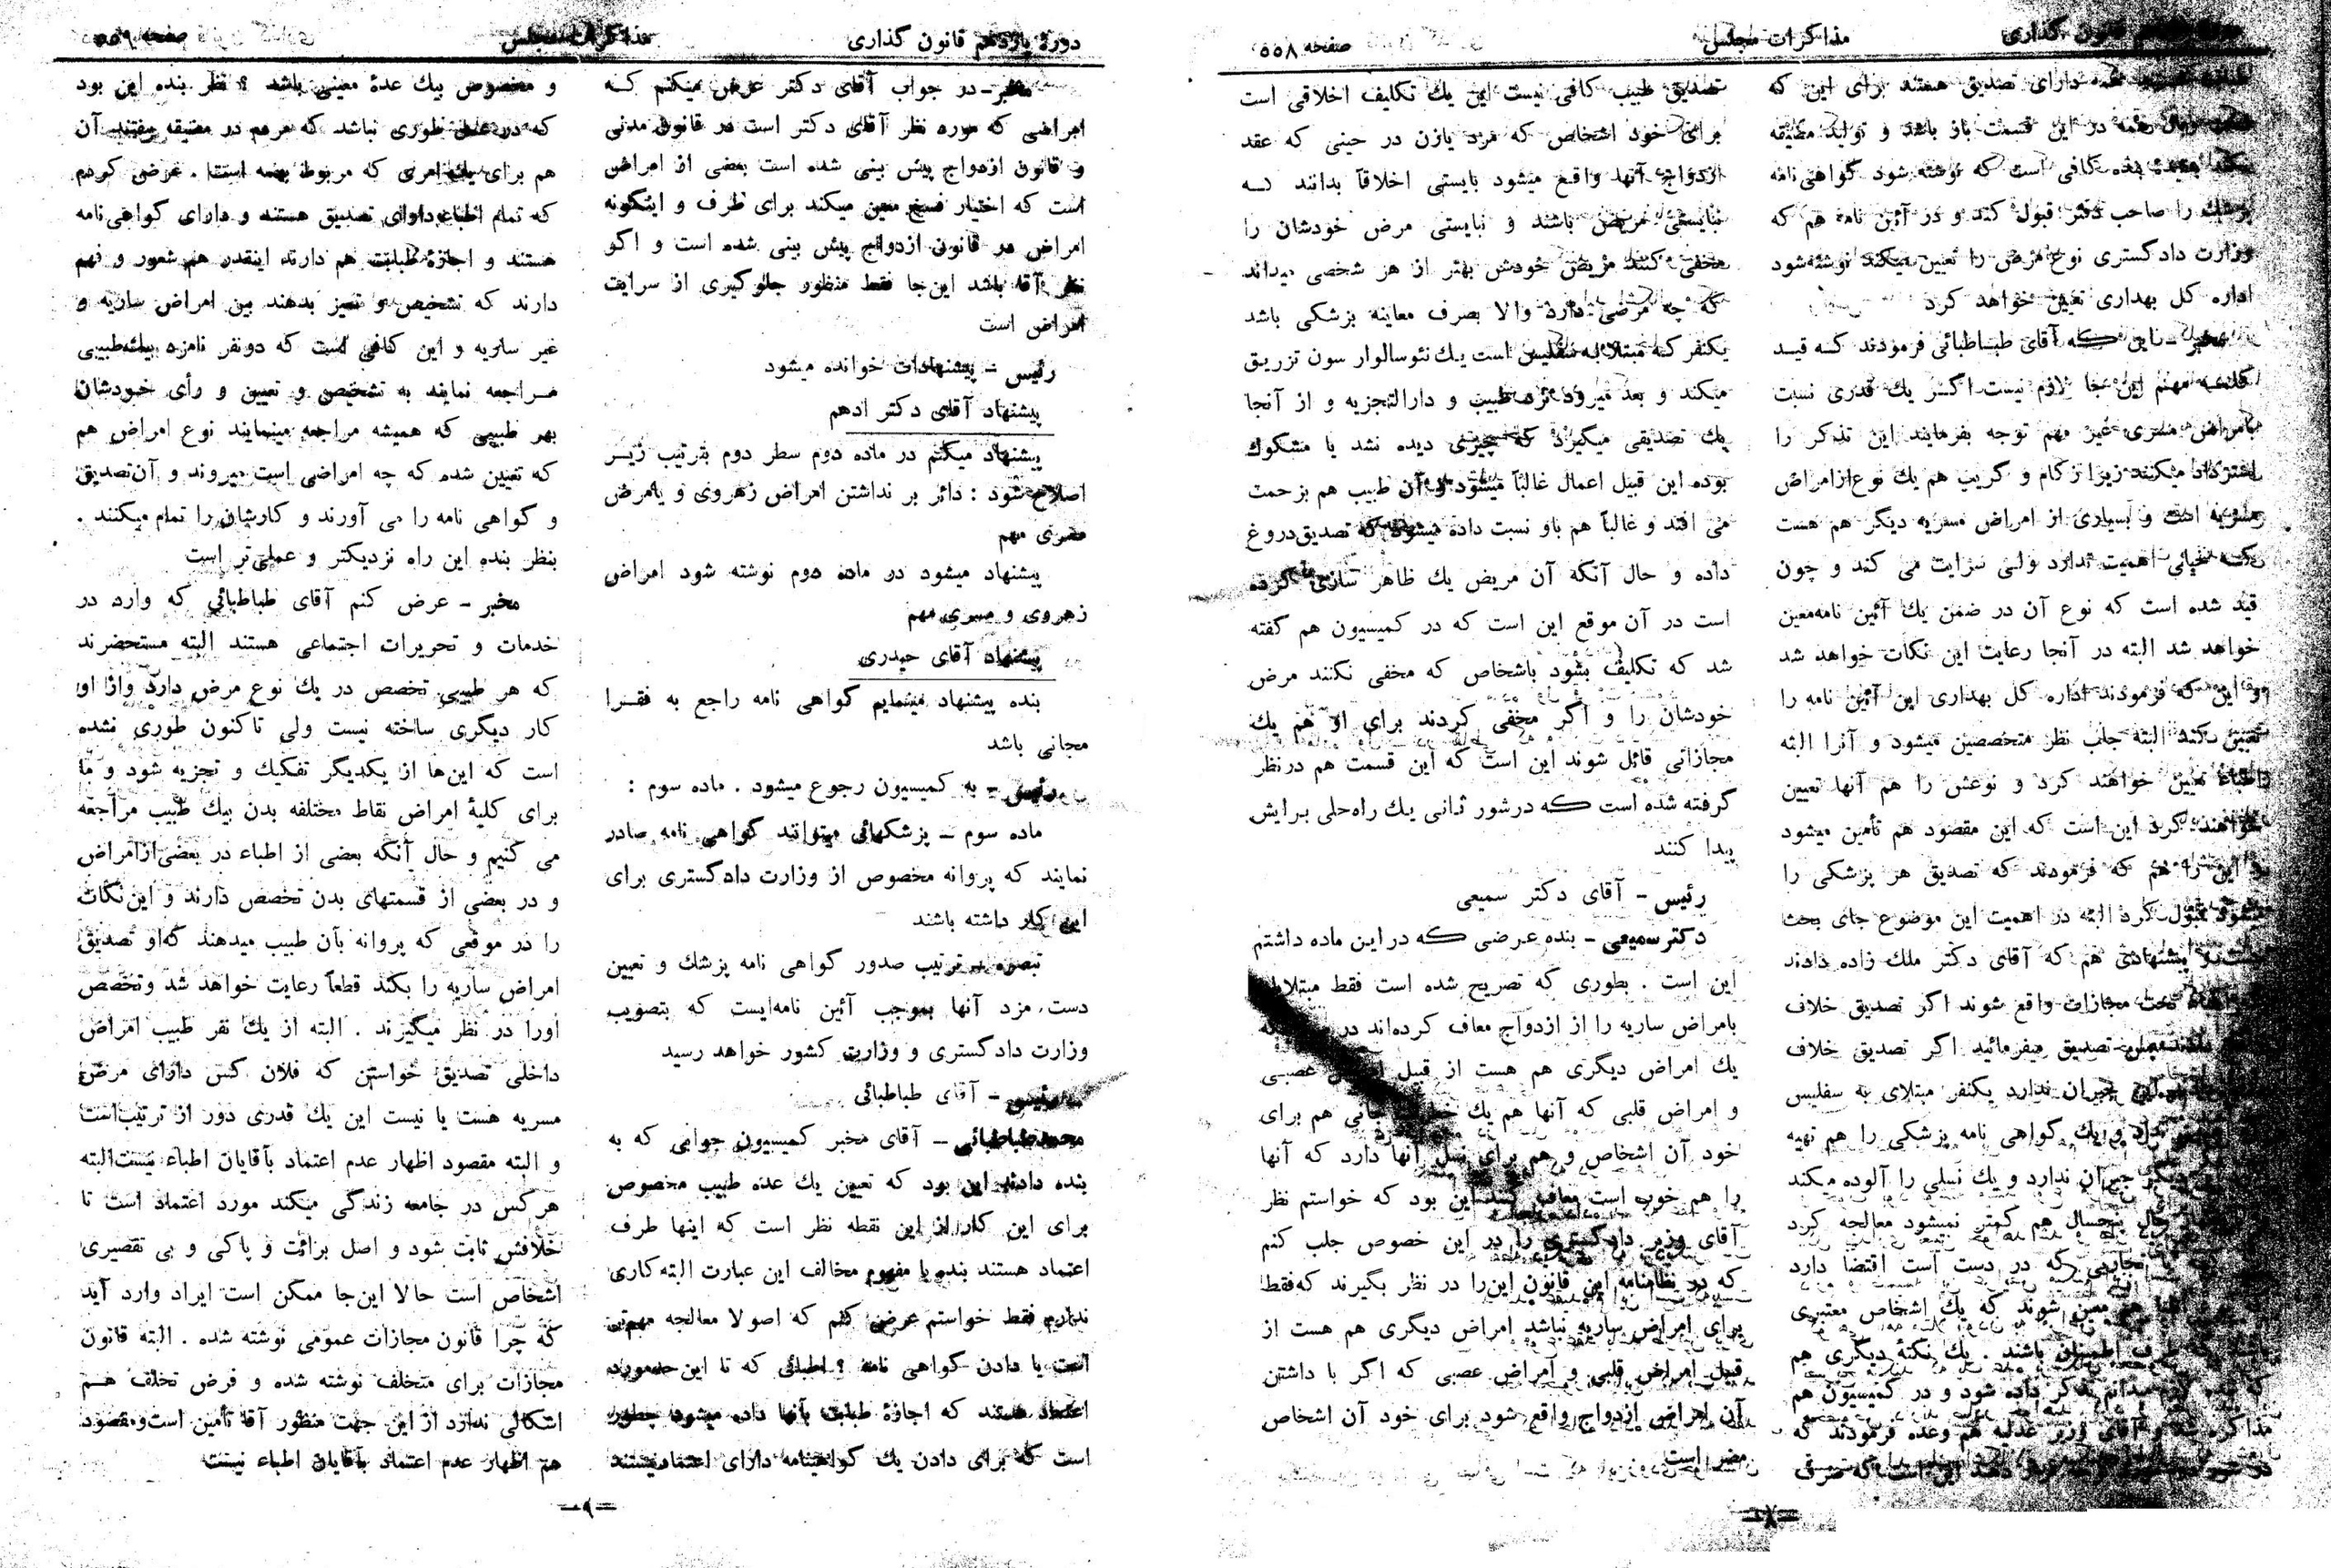 قانون گذاری
مذاکرات مجلس
صفحه ۵۵۸
دارای تصدیق هستند برای این که
همه در این قسمت باز باشد و تولید مضیقه
بنده کافی است که نوشته شود گواهی‌نامه
پزشك را صاحب دفتر قبول کند و در آئین نامه هم که
وزارت دادگستری نوع مرض را تعیین میکند نوشته‌شود
اداره کل بهداری تعیین خواهد کرد
مخبر - این که آقای طباطبائی فرمودند که قید
کلمه مهم این جا لازم نیست اگر یك قدری نسبت
بامراض مسری غیر مهم توجه بفرمایند این تذکر را
استرداد میکنند زیرا زکام و گریپ هم یك نوع ازامراض
مسریه است و بسیاری از امراض مسریه دیگر هم هست
که خیلی اهمیت ندارد ولی سرایت می کند و چون
قید شده است که نوع آن در ضمن یك آئین نامه‌معین
خواهد شد البته در آنجا رعایت این نکات خواهد شد
و این که فرمودند اداره کل بهداری این آئین نامه را
تعیین بکند البته جلب نظر متخصصین میشود و آنرا البته
اطباء تعیین خواهند کرد و نوعش را هم آنها تعیین
خواهند کرد این است که این مقصود هم تأمین میشود
این را هم که فرمودند که تصدیق هر پزشکی را
میشود قبول کرد البته در اهمیت این موضوع جای بحث
پیشنهادی هم که آقای دکتر ملك زاده دادند
تحت مجازات واقع شوند اگر تصدیق خلاف
تصدیق میفرمائید اگر تصدیق خلاف
جبران ندارد یکنفر مبتلای به سفلیس
یك گواهی نامه پزشکی را هم تهیه
جبران ندارد و یك نسلی را آلوده میکند
سال هم کمتر نمیشود معالجه کرد
که در دست است اقتضا دارد
معین شوند که یك اشخاص معتبری
طرف اطمینان باشند . یك نکتهٔ دیگری هم
تذکر داده شود و در کمیسیون هم
مذاکره شد و آقای وزیر عدلیه هم وعده فرمودند که
این است که صرف
تصدیق طبیب کافی نیست این یك تکلیف اخلاقی است
برای خود اشخاص که مرد یازن در حینی که عقد
ازدواج آنها واقع میشود بایستی اخلاقاً بدانند که
نبایستی مریض باشند و نبایستی مرض خودشان را
مخفی کنند مریض خودش بهتر از هر شخصی میداند
که چه مرضی دارد والا بصرف معاینه پزشکی باشد
یکنفر که مبتلا به سفلیس است یك نئوسالوارسون تزریق
میکند و بعد میرود نزد طبیب و دارالتجزیه و از آنجا
یك تصدیقی میگیرد که چیزی دیده نشد یا مشکوك
بوده این قبیل اعمال غالباً میشود و آن طبیب هم بزحمت
می افتد و غالباً هم باو نسبت داده میشود که تصدیق‌دروغ
داده و حال آنکه آن مریض یك ظاهر سازی کرده
است در آن موقع این است که در کمیسیون هم گفته
شد که تکلیف بشود باشخاص که مخفی نکنند مرض
خودشان را و اگر مخفی کردند برای او هم یك
مجازاتی قائل شوند این است که این قسمت هم درنظر
گرفته شده است که درشور ثانی یك راه‌حلی برایش
پیدا کنند
رئیس - آقای دکتر سمیعی
دکترسمیعی - بنده عرضی که دراین ماده داشتم
این است . بطوری که تصریح شده است فقط مبتلایان
بامراض ساریه را از ازدواج معاف کرده‌اند در
یك امراض دیگری هم هست از قبیل عصبی
و امراض قلبی که آنها هم یك هم برای
خود آن اشخاص و هم برای نسل آنها دارد که آنها
را هم خوب است معاف کنند این بود که خواستم نظر
آقای وزیر دادگستری را در این خصوص جلب کنم
که در نظامنامه این قانون این‌را در نظر بگیرند که‌فقط
برای امراض ساریه نباشد امراض دیگری هم هست از
قبیل امراض قلبی و امراض عصبی که اگر با داشتن
آن امراض ازدواج واقع شود برای خود آن اشخاص
مضر است
دورهٔ یازدهم قانون گذاری
مذاکرات مجلس
صفحه ۵۵۹
مخبر - در جواب آقای دکتر عرض میکنم که
امراضی که مورد نظر آقای دکتر است در قانون مدنی
و قانون ازدواج پیش بینی شده است بعضی از امراض
است که اختیار فسخ معین میکند برای طرف و اینگونه
امراض در قانون ازدواج پیش بینی شده است و اگر
نظر آقا باشد این‌جا فقط منظور جلوگیری از سرایت
امراض است
رئیس - پیشنهادات خوانده میشود
پیشنهاد آقای دکتر ادهم
پیشنهاد میکنم در ماده دوم سطر دوم بترتیب زیر
اصلاح شود : دائر بر نداشتن امراض زهروی و یامرض
مسری مهم
پیشنهاد میشود در ماده دوم نوشته شود امراض
زهروی و مسری مهم
پیشنهاد آقای حیدری
بنده پیشنهاد مینمایم گواهی نامه راجع به فقرا
مجانی باشد
رئیس - به کمیسیون رجوع میشود . ماده سوم :
ماده سوم - پزشکهائی میتوانند گواهی نامه صادر
نمایند که پروانه مخصوص از وزارت دادگستری برای
این کار داشته باشند
تبصره - ترتیب صدور گواهی نامه پزشك و تعیین
دست مزد آنها بموجب آئین نامه‌ایست که بتصویب
وزارت دادگستری و وزارت کشور خواهد رسید
رئیس - آقای طباطبائی
محمدطباطبائی - آقای مخبر کمیسیون جوابی که به
بنده دادند این بود که تعیین یك عده طبیب مخصوص
برای این کار از این نقطه نظر است که اینها طرف
اعتماد هستند بنده با مفهوم مخالف این عبارت البته کاری
ندارم فقط خواستم عرض کنم که اصولا معالجه مهم‌تر
است یا دادن گواهی نامه ؟ اطبائی که تا این حد مورد
اعتماد هستند که اجازهٔ طبابت بآنها داده میشود چطور
است که برای دادن یك گواهینامه دارای اعتمادنیستند
و مخصوص بیك عدهٔ معینی باشد ؟ نظر بنده این بود
که در عمل طوری نباشد که مردم در مضیقه بیفتند آن
هم برای یك امری که مربوط بهمه است . عرض کردم
که تمام اطباء دارای تصدیق هستند و دارای گواهی‌نامه
هستند و اجازهٔ طبابت هم دارند اینقدر هم شعور و فهم
دارند که تشخیص و تمیز بدهند بین امراض ساریه و
غیر ساریه و این کافی است که دونفر نامزد بیك‌طبیبی
مراجعه نمایند به تشخیص و تعیین و رأی خودشان
بهر طبیبی که همیشه مراجعه مینمایند نوع امراض هم
که تعیین شده که چه امراضی است میروند و آن‌تصدیق
و گواهی نامه را می آورند و کارشان را تمام میکنند .
بنظر بنده این راه نزدیکتر و عملی‌تر است
مخبر - عرض کنم آقای طباطبائی که وارد در
خدمات و تحریرات اجتماعی هستند البته مستحضرند
که هر طبیبی تخصص در یك نوع مرض دارد وازا او
کار دیگری ساخته نیست ولی تاکنون طوری نشده
است که این‌ها از یکدیگر تفکیك و تجزیه شود و ما
برای کلیهٔ امراض نقاط مختلفه بدن بیك طبیب مراجعه
می کنیم و حال آنکه بعضی از اطباء در بعضی‌ازامراض
و در بعضی از قسمتهای بدن تخصص دارند و این‌نکات
را در موقعی که پروانه بآن طبیب میدهند که‌او تصدیق
امراض ساریه را بکند قطعاً رعایت خواهد شد وتخصص
اورا در نظر میگیرند . البته از یك نفر طبیب امراض
داخلی تصدیق خواستن که فلان کس دارای مرض
مسریه هست یا نیست این یك قدری دور از ترتیب‌است
و البته مقصود اظهار عدم اعتماد بآقایان اطباء نیست‌البته
هرکس در جامعه زندگی میکند مورد اعتماد است تا
خلافش ثابت شود و اصل برائت و پاکی و بی تقصیری
اشخاص است حالا این‌جا ممکن است ایراد وارد آید
که چرا قانون مجازات عمومی نوشته شده . البته قانون
مجازات برای متخلف نوشته شده و فرض تخلف هم
اشکالی ندارد از این جهت منظور آقا تأمین است‌ومقصود
هم اظهار عدم اعتماد بآقایان اطباء نیست
-۹-